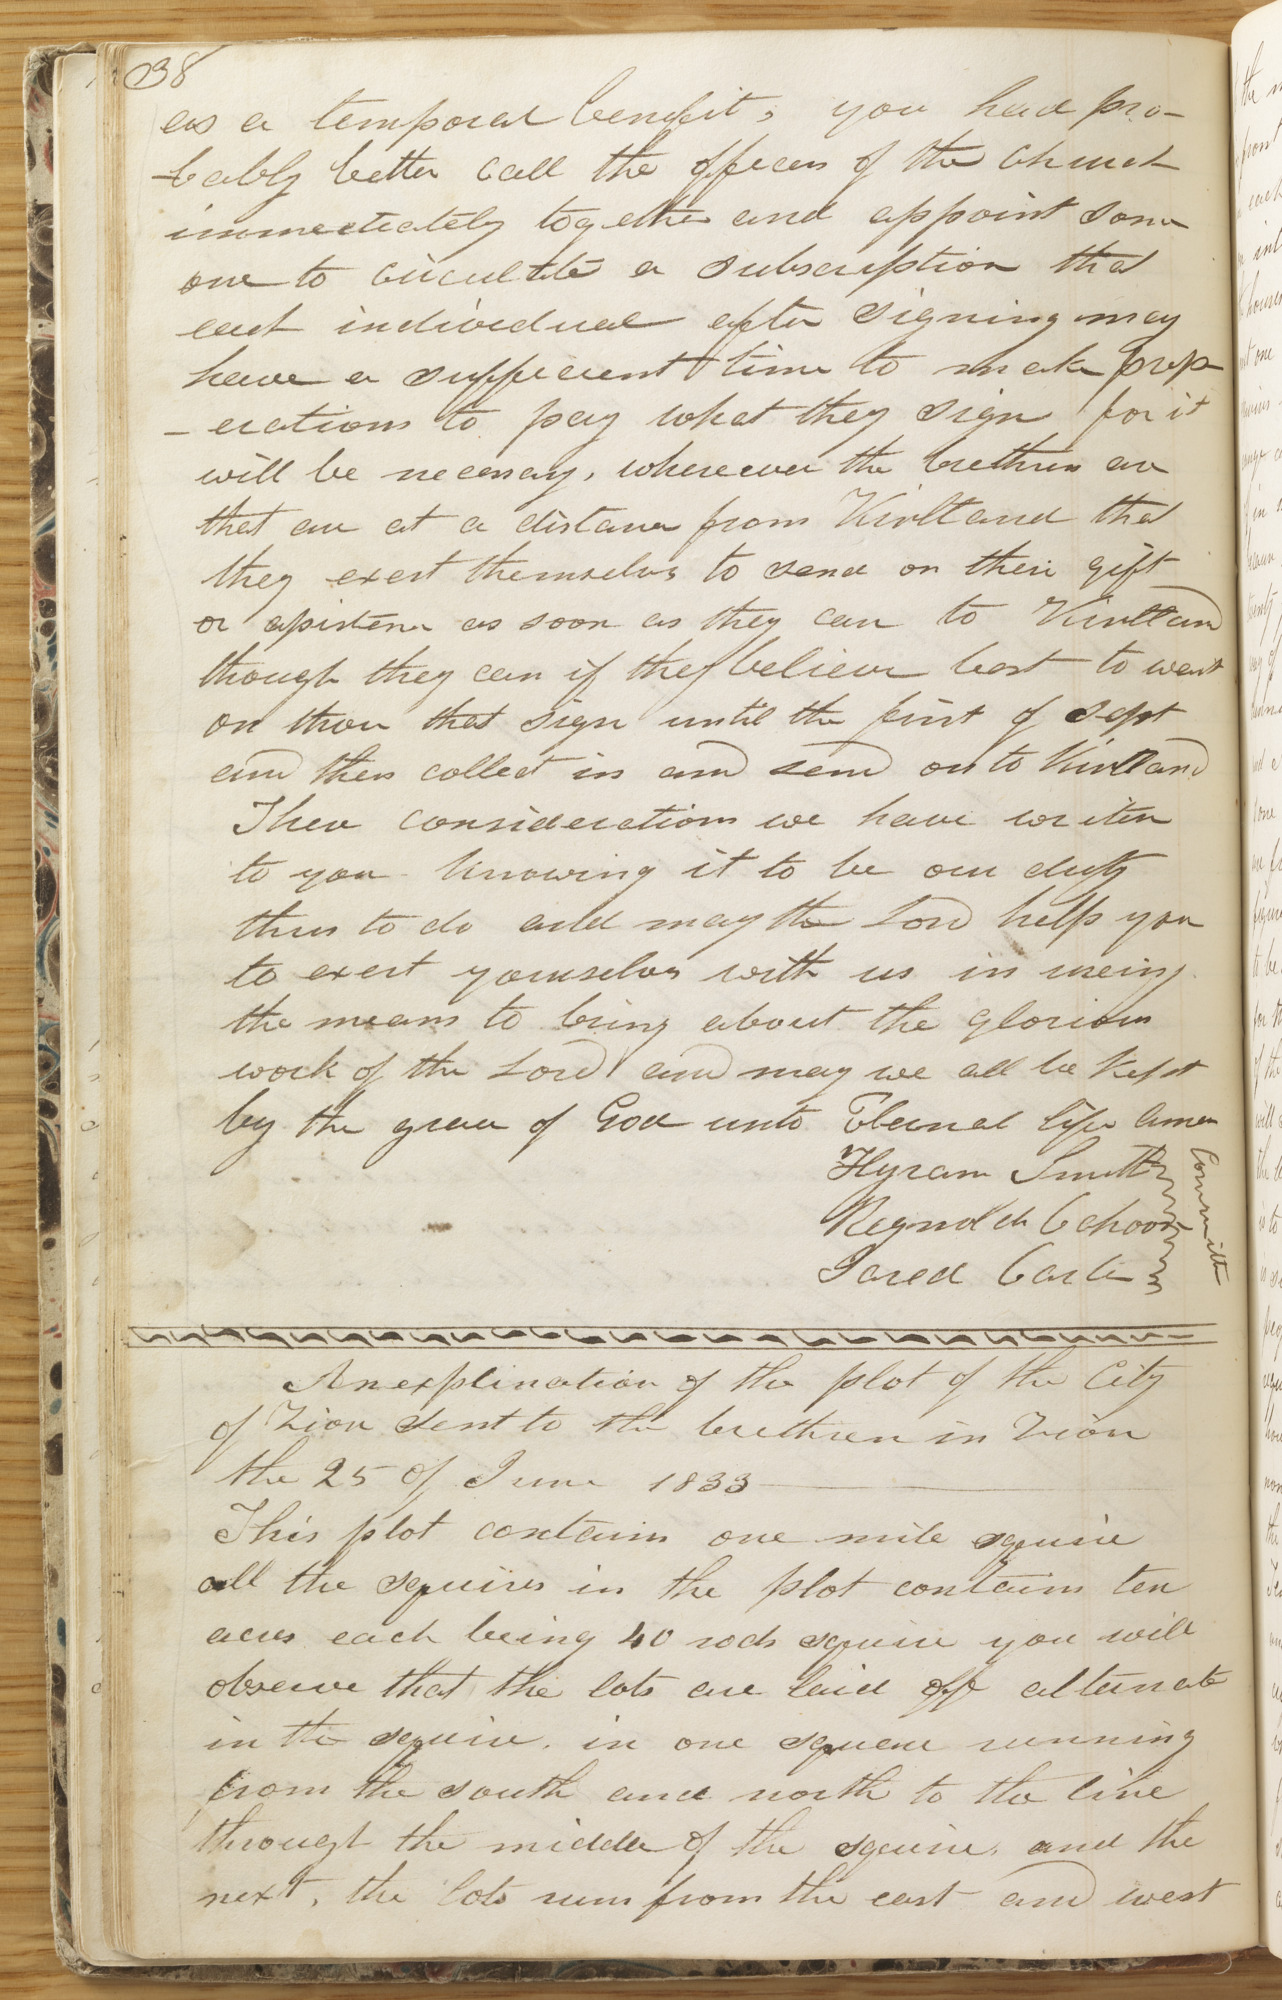 38
as a temporal benefit, you had pro-
-bably better call the officers of the Church
immediately together and appoint some
one to circulate a subscription that
each individual after signing may
have a sufficient time to make prep
-erations to pay what they sign for it
will be necessary, wherever the brethren are
that are at a distance from Kirtland that
they exert themselves to send on their gift
or asistence as soon as they can to Kirtland
though they can if they believe best to wait
on those that sign until the first of Sept
and then collect in and send on to Kirtland
These considerations we have writen
to you knowing it to be our duty
thus to do and may the Lord help you
to exert yourselves with us in useing
the means to bring about the glorious
work of the Lord and may we all be kept
by the grace of God unto Eternal life Amen
Hyram Smith
Reynolds Cahoon
Jared Carter
Committe
An explination of the plot of the City
of Zion sent to the brethren in Zion
the 25 of June 1833
This plot contains one mile squire
all the squires in the plot contains ten
acres each being 40 rods squire you will
observe that the lots are laid off alternate
in the squire. in one square running
from the south and north to the line
through the middle of the squire, and the
next, the lots runs from the east and west